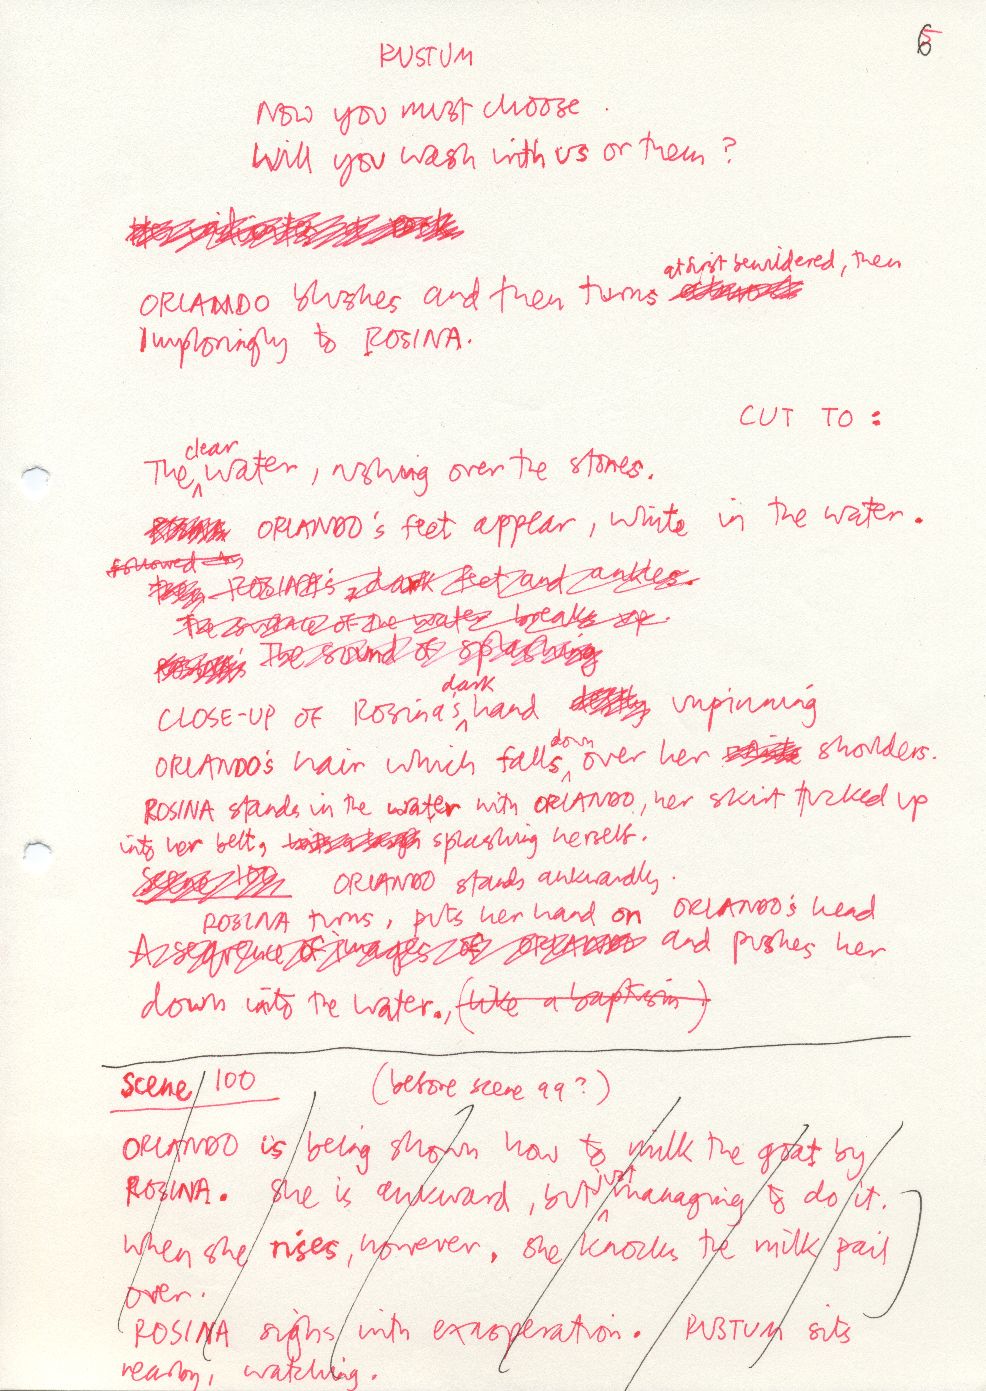 6
RUSTUM
Now you must choose.
Will you wash with us or them?
at first bewildered, then
ORLANDO blushes and then turns
imploringly to ROSINA.
CUT TO:
clear
The water, rushing over the stones.
ORLANDO's feet appear, white in the water.
followed by
ROSINA's dark feet and ankles.
The surface of the water breaks up.
The sound of splashing
dark
CLOSE-UP OF Rosina's hand unpinning
down
ORLANDO's hair which falls over her shoulders.
ROSINA stands in the water with ORLANDO, her skirt tucked up
into her belt, splashing herself.
Scene 100 ORLANDO stands awkwardly.
ROSINA turns, puts her hand on ORLANDO's head
A sequence of images of ORLANDO and pushes her
down into the water., (like a baptism)
Scene 100 (before scene 99?)
ORLANDO is being shown how to milk the goat by
just
ROSINA. She is awkward, but managing to do it.
When she rises, however, she knocks the milk pail
over.
ROSINA sighs with exasperation. RUSTUM sits
nearby, watching.